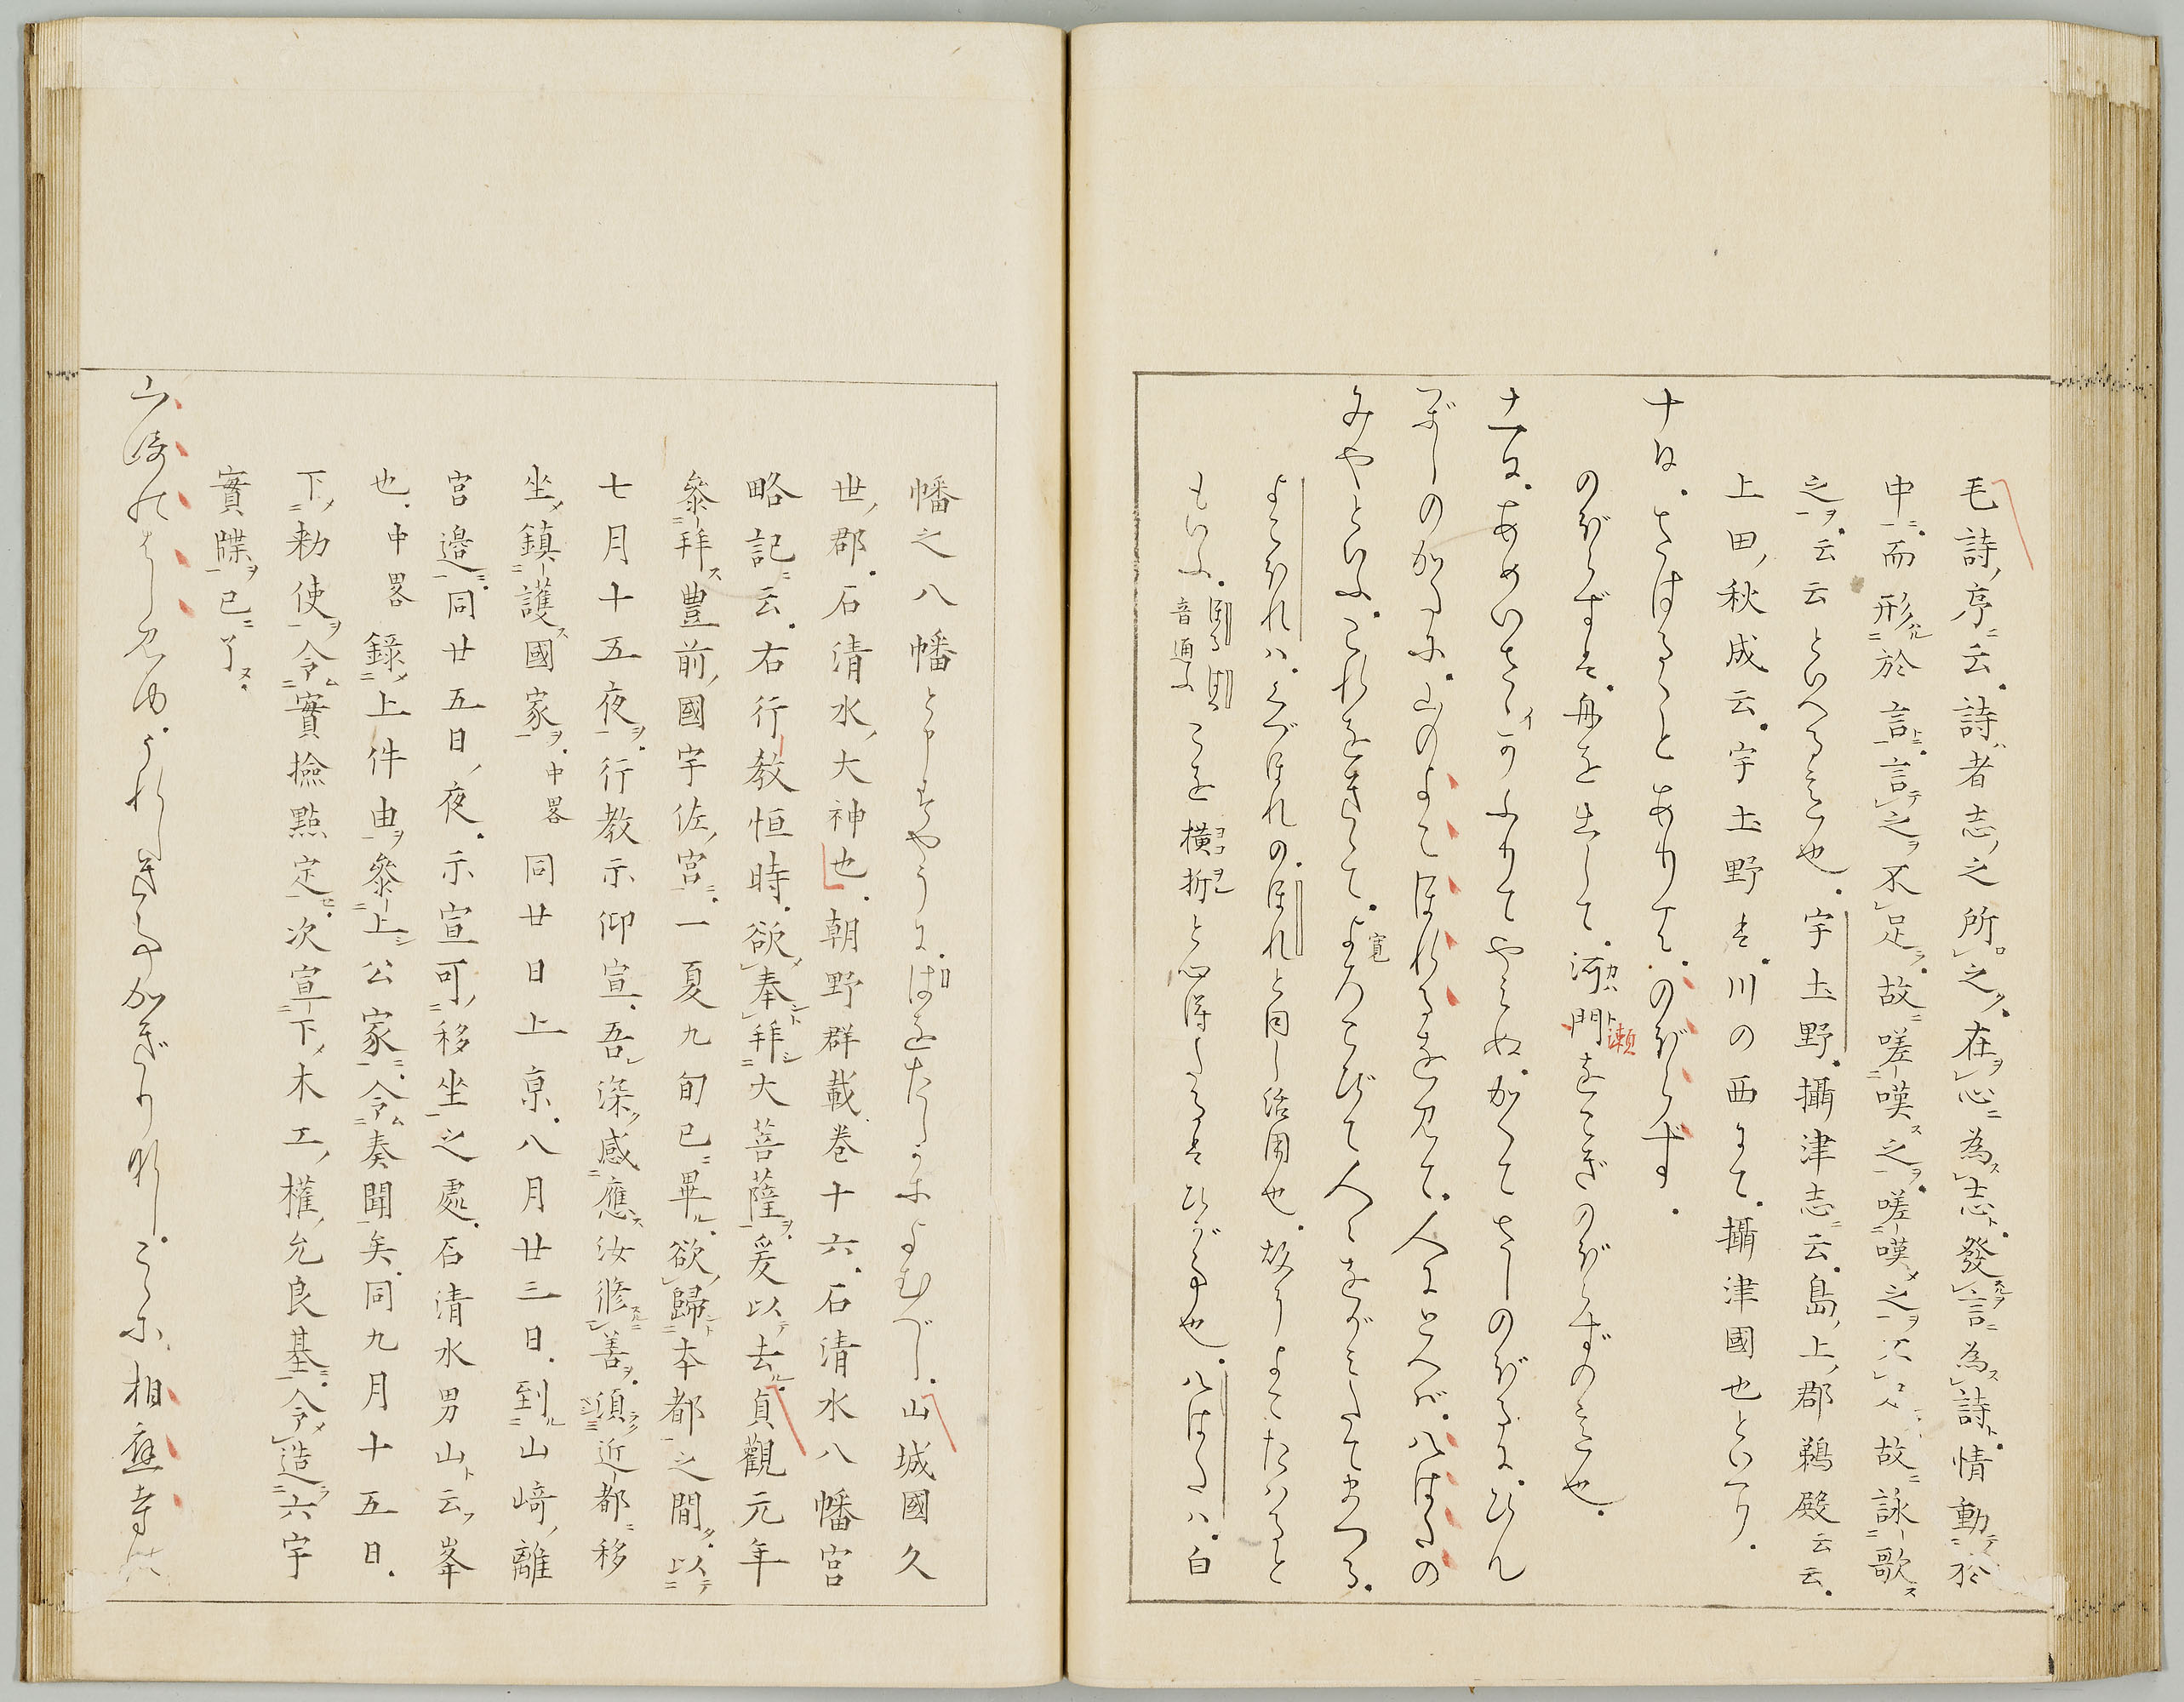 毛詩序云詩者志之所之在心為志發言為詩情動於
中而形於言言之不足故嗟嘆之嗟嘆之不足故詠歌
之云云といへるこゝろ也宇土野攝津志云島上郡鵜殿云云
上田秋成云宇土野は川の西にて攝津國也といへり
十日さはることありてのぼらず
のぼらずは舟を出して河門をこぎのぼらずのこゝろ也
瀬
十一日あめいさゝかふりてやみぬかくてさしのぼるにひん
がしのかたに山のよこほれるを見て人にとへば八はたの
みやといふこれをきゝてよろこびて人々をがみたてまつる
よこほれはくづほれのほれと同し活用也故によこたはると
もいふ
音通ふ
こを横折と心得たるはひが事也八はたは白
幡之八幡と申すやうにはをたしかによむべし山城國久
世郡石清水大神也朝野群載巻十六石清水八幡宮
略記云右行教恒時欲奉拜大菩薩爰以去貞觀元年
參拜豊前國宇佐宮一夏九旬已畢欲歸本都之間以
七月十五夜行教示仰宣吾深感應汝修善須近都移
坐鎮護國家中畧同廿日上京八月廿三日到山﨑離
宮邉同廿五日夜示宣可移坐之處石清水男山云峯
也中畧錄上件由參上公家令奏聞矣同九月十五日
下勅使令實撿點定次宣下木工權允良基令造六宇
寳牒已了
山崎のはし見ゆうれしきことかぎりなしこゝに相應寺の